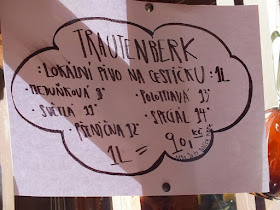 TRAUTENBERK
:LOKÁLNÍ PIVO NA CESTIČKU: 1L
•MEJUŇKOVÁ 9° •POLOTMAVÁ 13°
•SVĚTLÁ 11° •SPECIÁL 14°
•PŠENIČNÁ 12°
1L = 90,- KČ